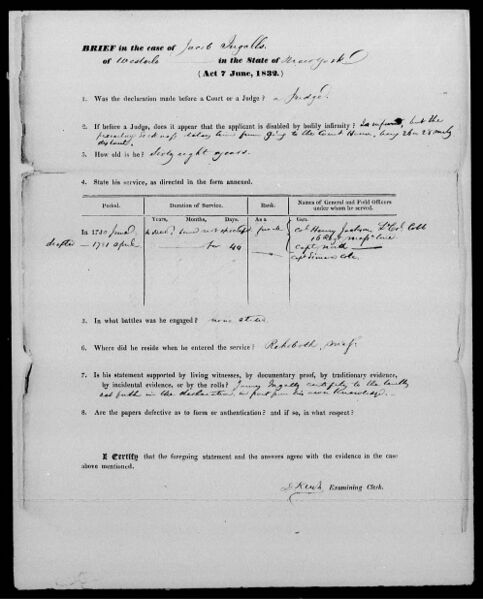 BRIEF in the case of Jacob Ingalls
of Westerlo in the State of New York
(Act 7 June, 1832.)
1. Was the declaration made before a Court or a Judge? a Judge.
2. If before a Judge, does it appear that the applicant is disabled by bodily infirmity? is infirm, but the
from going to the Court House, being 26 or 28 miles
distant.
3. How old is he? Sixty eight years.
4. State his service, as directed in the form annexed.
Period. Duration of Service. Rank. Names of General and Field Officers under whom he served.
Years, Months, Days. As a Gen.
In 1780 June to Decr. private Col Henry Jackson Lt Col Cobb
16 Regt Mass line
1781 April 44 capt
capt Simeon Cole
5. In what battles was he engaged? none stated
6. Where did he reside when he entered the service? Rehoboth, Mass.
7. Is his statement supported by living witnesses, by documentary proof, by traditionary evidence,
by incidental evidence, or by the rolls? Ingalls certify to the truths
set forth in the declaration, in part from his own knowledge.
8. Are the papers defective as to form or authentication? and if so, in what respect?
I Certify that the foregoing statement and the answers agree with the evidence in the case
above mentioned.
Examining Clerk.